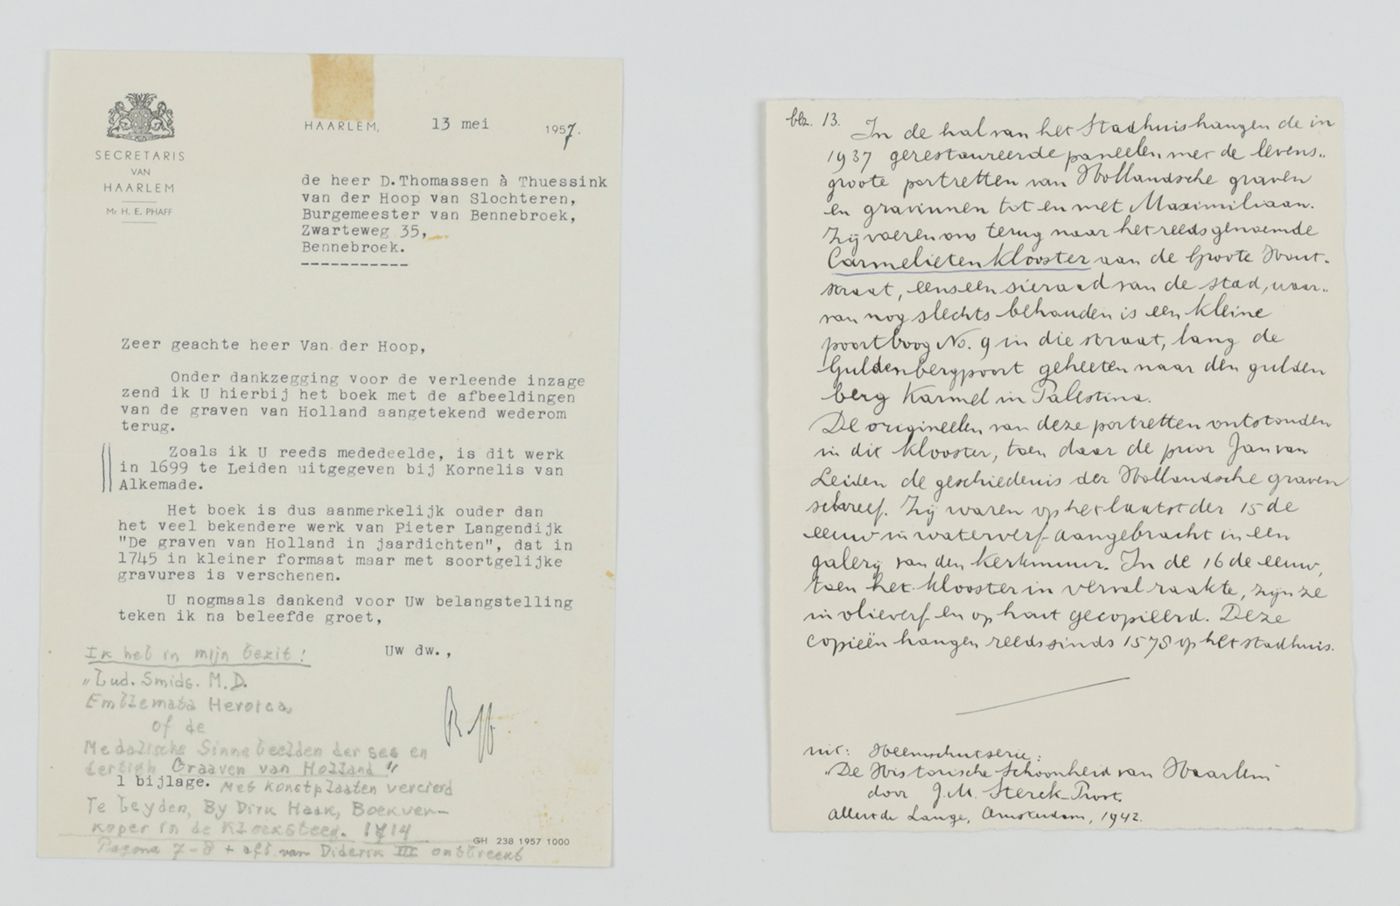 SECRETARIS
VAN
HAARLEM
Mr H. E. PHAFF
HAARLEM, 13 mei 1957.
de heer D.Thomassen à Thuessink
van der Hoop van Slochteren,
Burgemeester van Bennebroek,
Zwarteweg 35,
Bennebroek.
Zeer geachte heer Van der Hoop,
Onder dankzegging voor de verleende inzage
zend ik U hierbij het boek met de afbeeldingen
van de graven van Holland aangetekend wederom
terug.
Zoals ik U reeds mededeelde, is dit werk
in 1699 te Leiden uitgegeven bij Kornelis van
Alkemade.
Het boek is dus aanmerkelijk ouder dan
het veel bekendere werk van Pieter Langendijk
"De graven van Holland in jaardichten", dat in
1745 in kleiner formaat maar met soortgelijke
gravures is verschenen.
U nogmaals dankend voor Uw belangstelling
teken ik na beleefde groet,
Uw dw.,
Ik heb in mijn bezit!
"Lud. Smids. M.D.
Emblemata Heroica,
of de
Medalische Sinnebeelden der ses en
dertigh Graaven van Holland"
1 bijlage. met konstplaaten vercierd
Te Leyden, By Dirk Haak, Boekver-
koper in de Kloksteeg. 1714
Pagina 7-8 + afb van Diderik III ontbreekt
GH 238 1957 1000
blz. 13. In de hal van het Stadhuis hangen de in
1937 gerestaureerde paneelen met de levens-
groote portretten van Hollandsche graven
en gravinnen tot en met Maximiliaan.
Zij voeren ons terug naar het reeds genoemde
Carmelieten klooster aan de Groote Hout-
straat, eens een sieraad van de stad, waar-
van nog slechts behouden is een kleine
poortboog No. 9 in die straat, lang de
Guldenbergpoort geheeten naar den gulden
berg Karmel in Palestina.
De origineelen van deze portretten ontstonden
in dit klooster, toen daar de prior Jan van
Leiden de geschiedenis der Hollandsche graven
schreef. Zij waren op het laatst der 15de
eeuw in waterverf aangebracht in een
galerij van den kerkmuur. In de 16de eeuw,
toen het klooster in verval raakte, zijn ze
in olieverf en op hout gecopieerd. Deze
copieën hangen reeds sinds 1578 op het stadhuis.
uit: Heemschutserie:
"De Historische Schoonheid van Haarlem"
door J.M. Sterck-Proot.
Allert de Lange, Amsterdam, 1942.